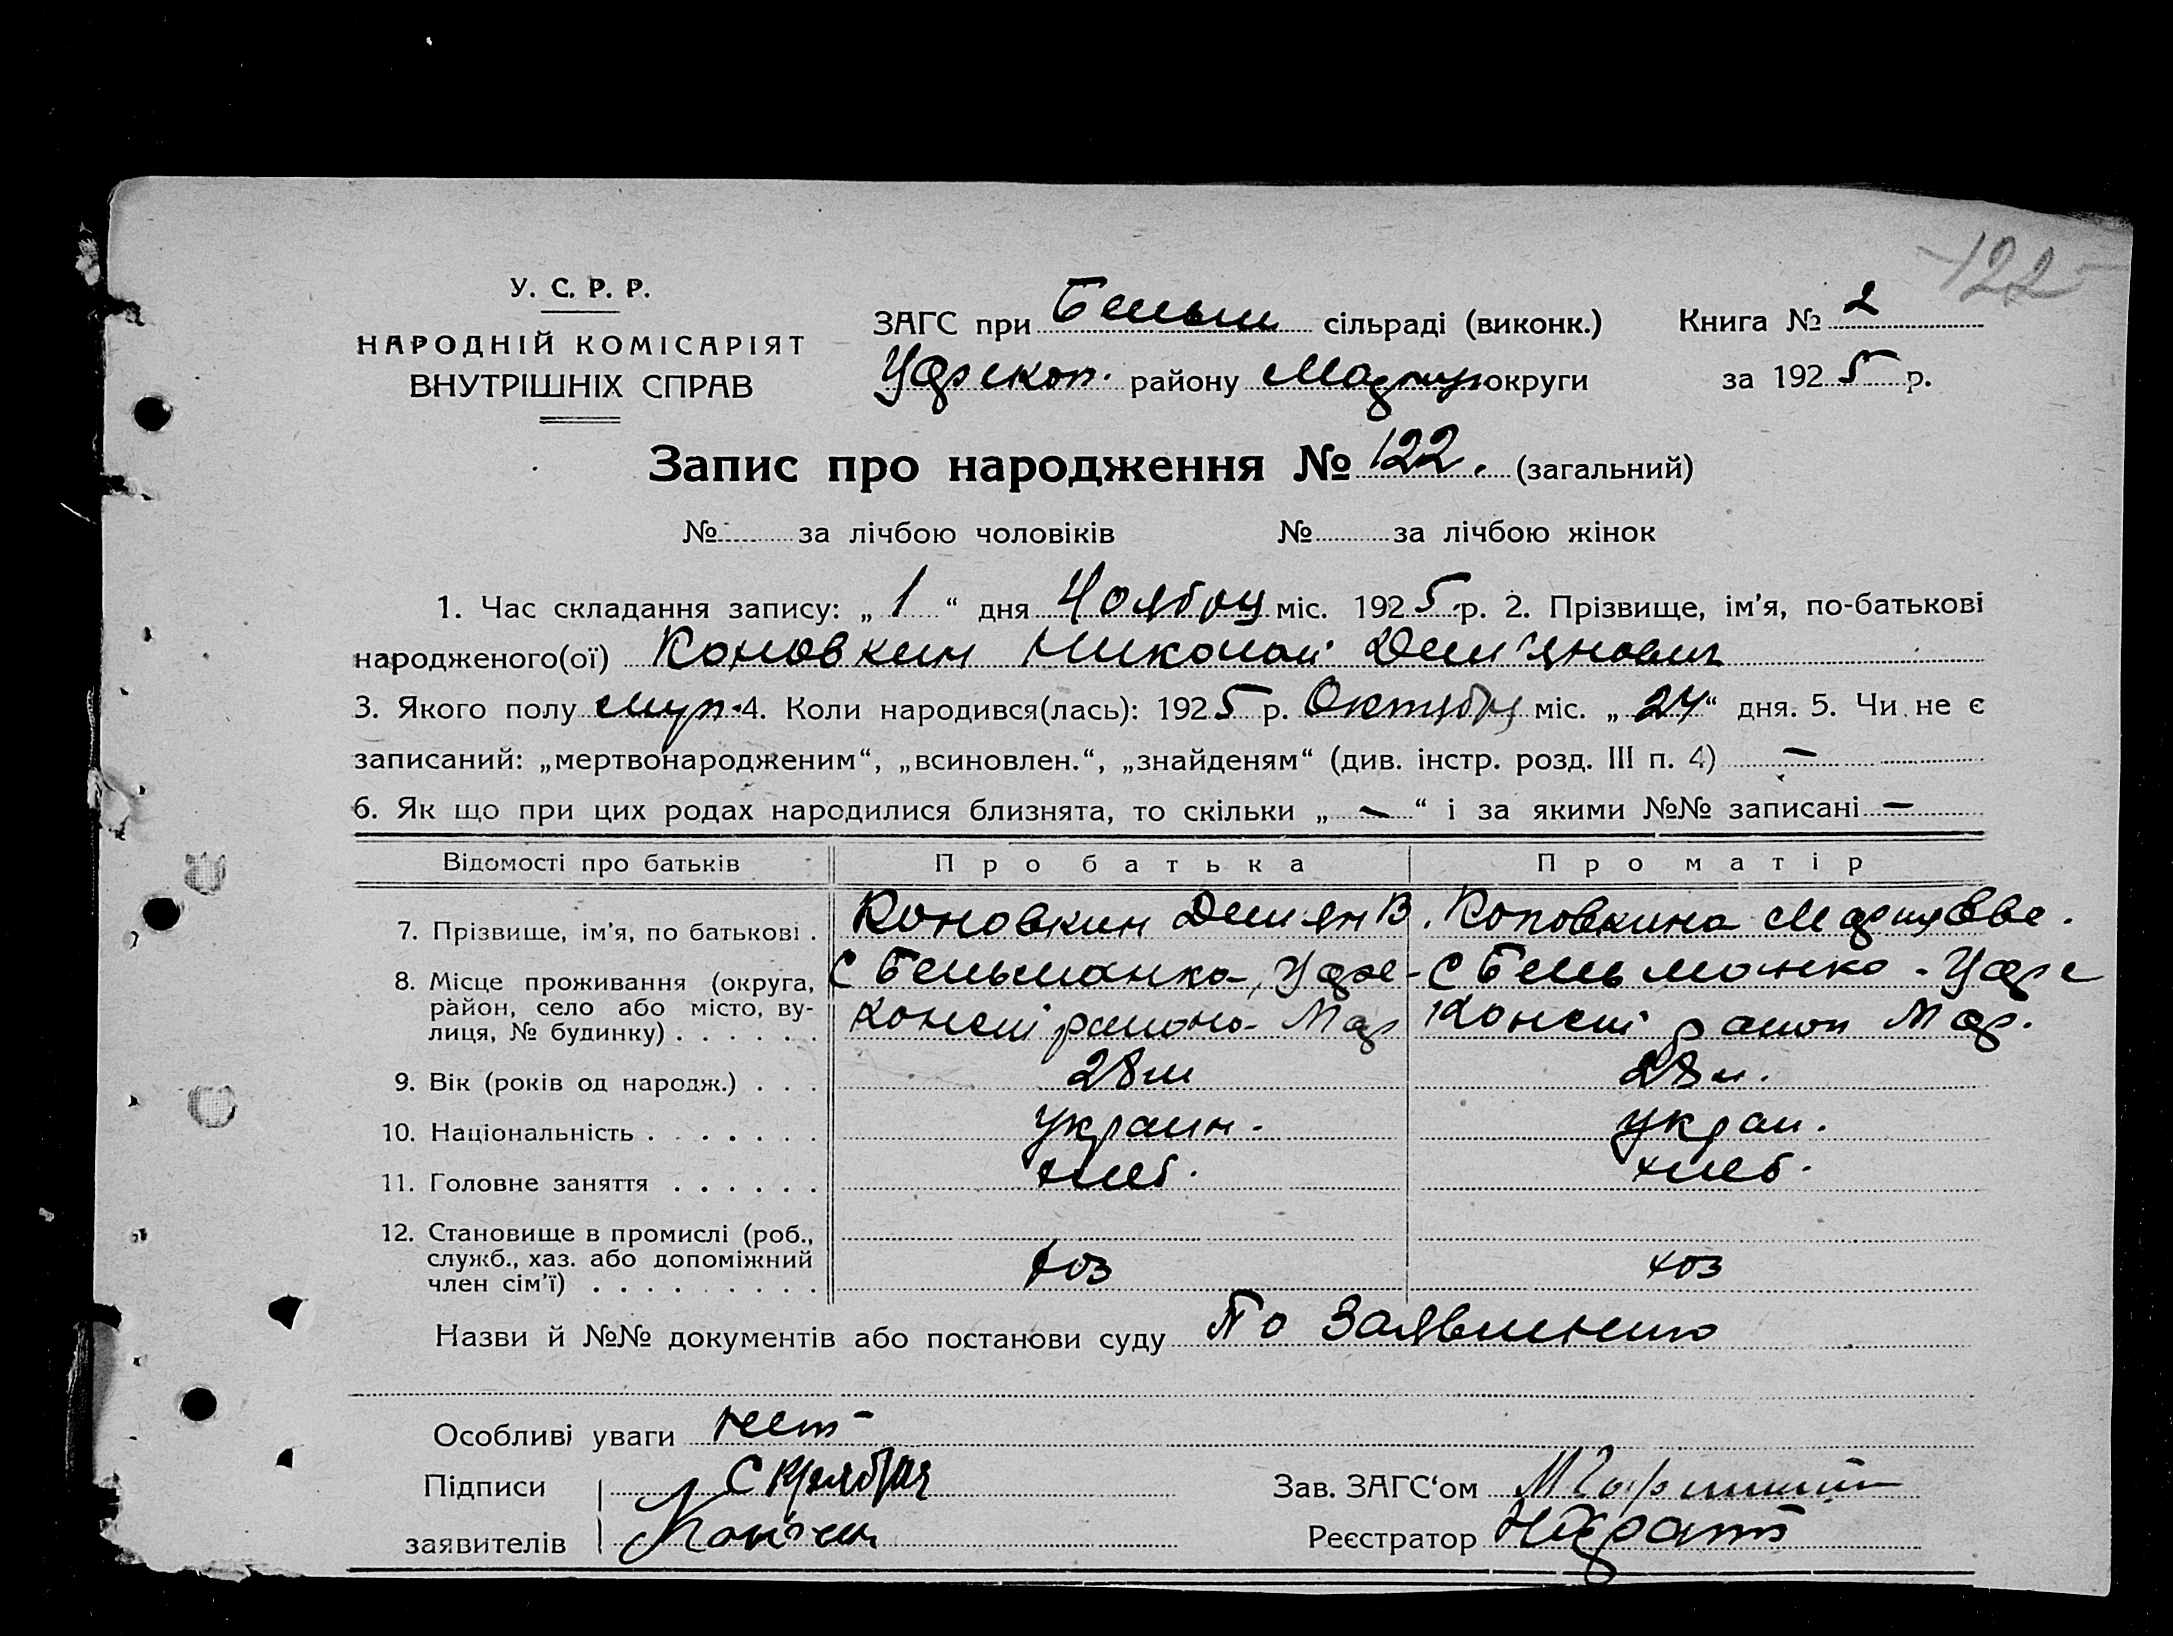 122
У. С. Р. Р.
НАРОДНІЙ КОМІСАРІЯТ
ВНУТРІШНІХ СПРАВ
ЗАГС при Бельм сільраді (виконк.) Книга № 2
району округи за 1925 р.
Запис про народження № 122. (загальний)
№ за лічбою чоловіків № за лічбою жінок
1. Час складання запису: „ 1 “ дня Ноября міс. 1925 р. 2. Прізвище, ім'я, по-батькові
народженого(ої) Коновкин Николай Демʼянович
3. Якого полу муж. 4. Коли народився(лась): 1925 р. Октября міс. „ 24 “ дня. 5. Чи не є
записаний: „мертвонародженим“, „всиновлен.“, „знайденям“ (див. інстр. розд. III п. 4) —
6. Як що при цих родах народилися близнята, то скільки „ — “ і за якими №№ записані —
Відомості про батьків Про батька Про матір
7. Прізвище, ім'я, по батькові . Коновкин Демиян В. Коновкина Мария
8. Місце проживання (округа, с Бельманка, с Бельманка
район, село або місто, ву-
лиця, № будинку) . . . . . . района Мар район Мар.
9. Вік (років од народж.) . . . 28 л 28 л.
10. Національність . . . . . . . украин. украи.
11. Головне заняття . . . . . . хлеб. хлеб.
12. Становище в промислі (роб.,
служб., хаз. або допоміжний
член сім'ї) . . . . . . . . . хоз хоз
Назви й №№ документів або постанови суду По Заявлению
Особливі уваги нет -
Підписи Зав. ЗАГС‘ом
заявителів Реєстратор